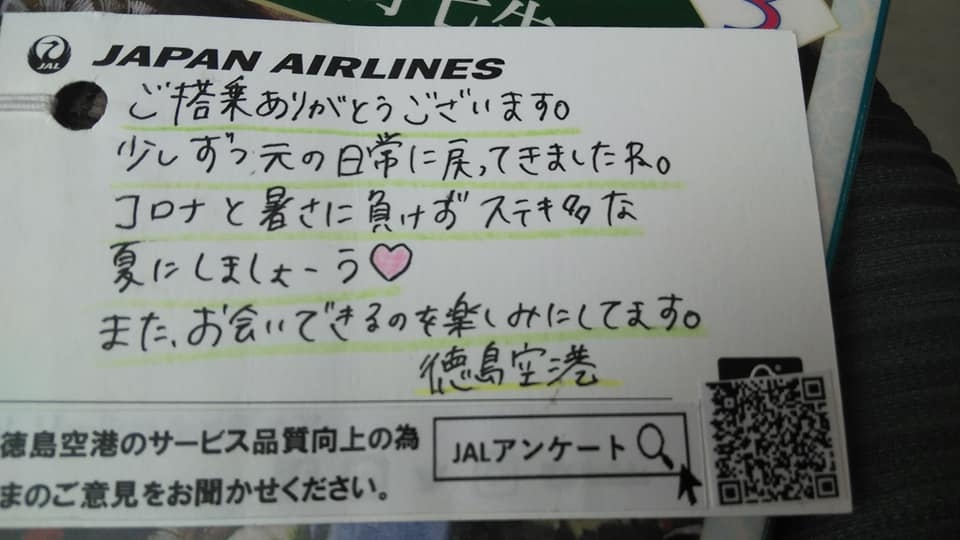 3
JAL
JAPAN AIRLINES
ご搭乗ありがとうございます。
少しずつ元の日常に戻ってきましたネ。
コロナと暑さに負けずステキ多な
夏にしましょーう♡
また、お会いできるのを楽しみにしてます。
徳島空港
徳島空港のサービス品質向上の為
まのご意見をお聞かせください。
JALアンケート